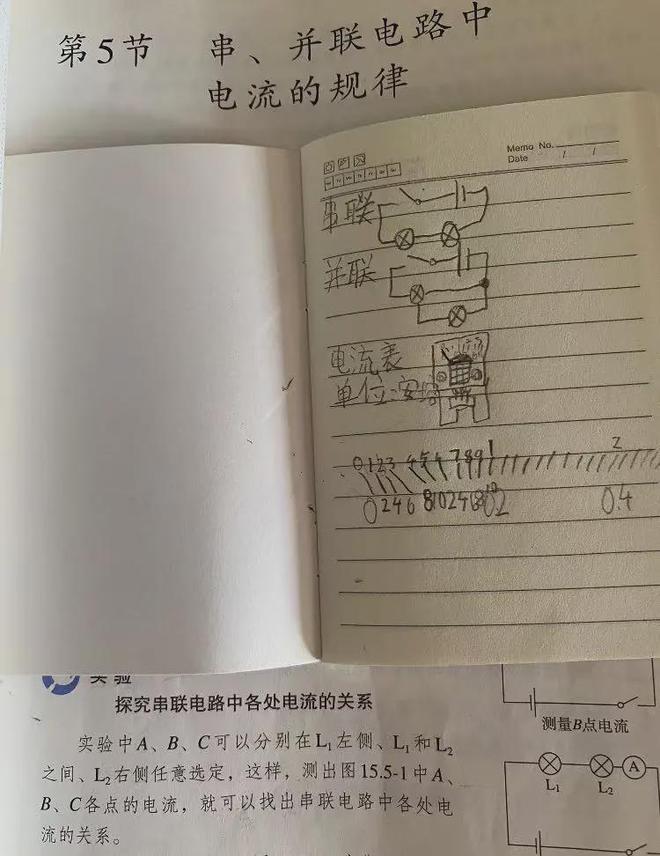 第5节 串、并联电路中
电流的规律
Memo No.
Date / /
串联
并联
电流表
单位:安培
0 1 2 3 4 5 6 7 8 9 1 2
0 2 4 6 8 10 2 4 6 8 0.2 0.4
实验
探究串联电路中各处电流的关系
实验中A、B、C可以分别在L₁左侧、L₁和L₂
之间、L₂右侧任意选定,这样,测出图15.5-1中A、
B、C各点的电流,就可以找出串联电路中各处电
流的关系。
测量B点电流
A
L₁ L₂